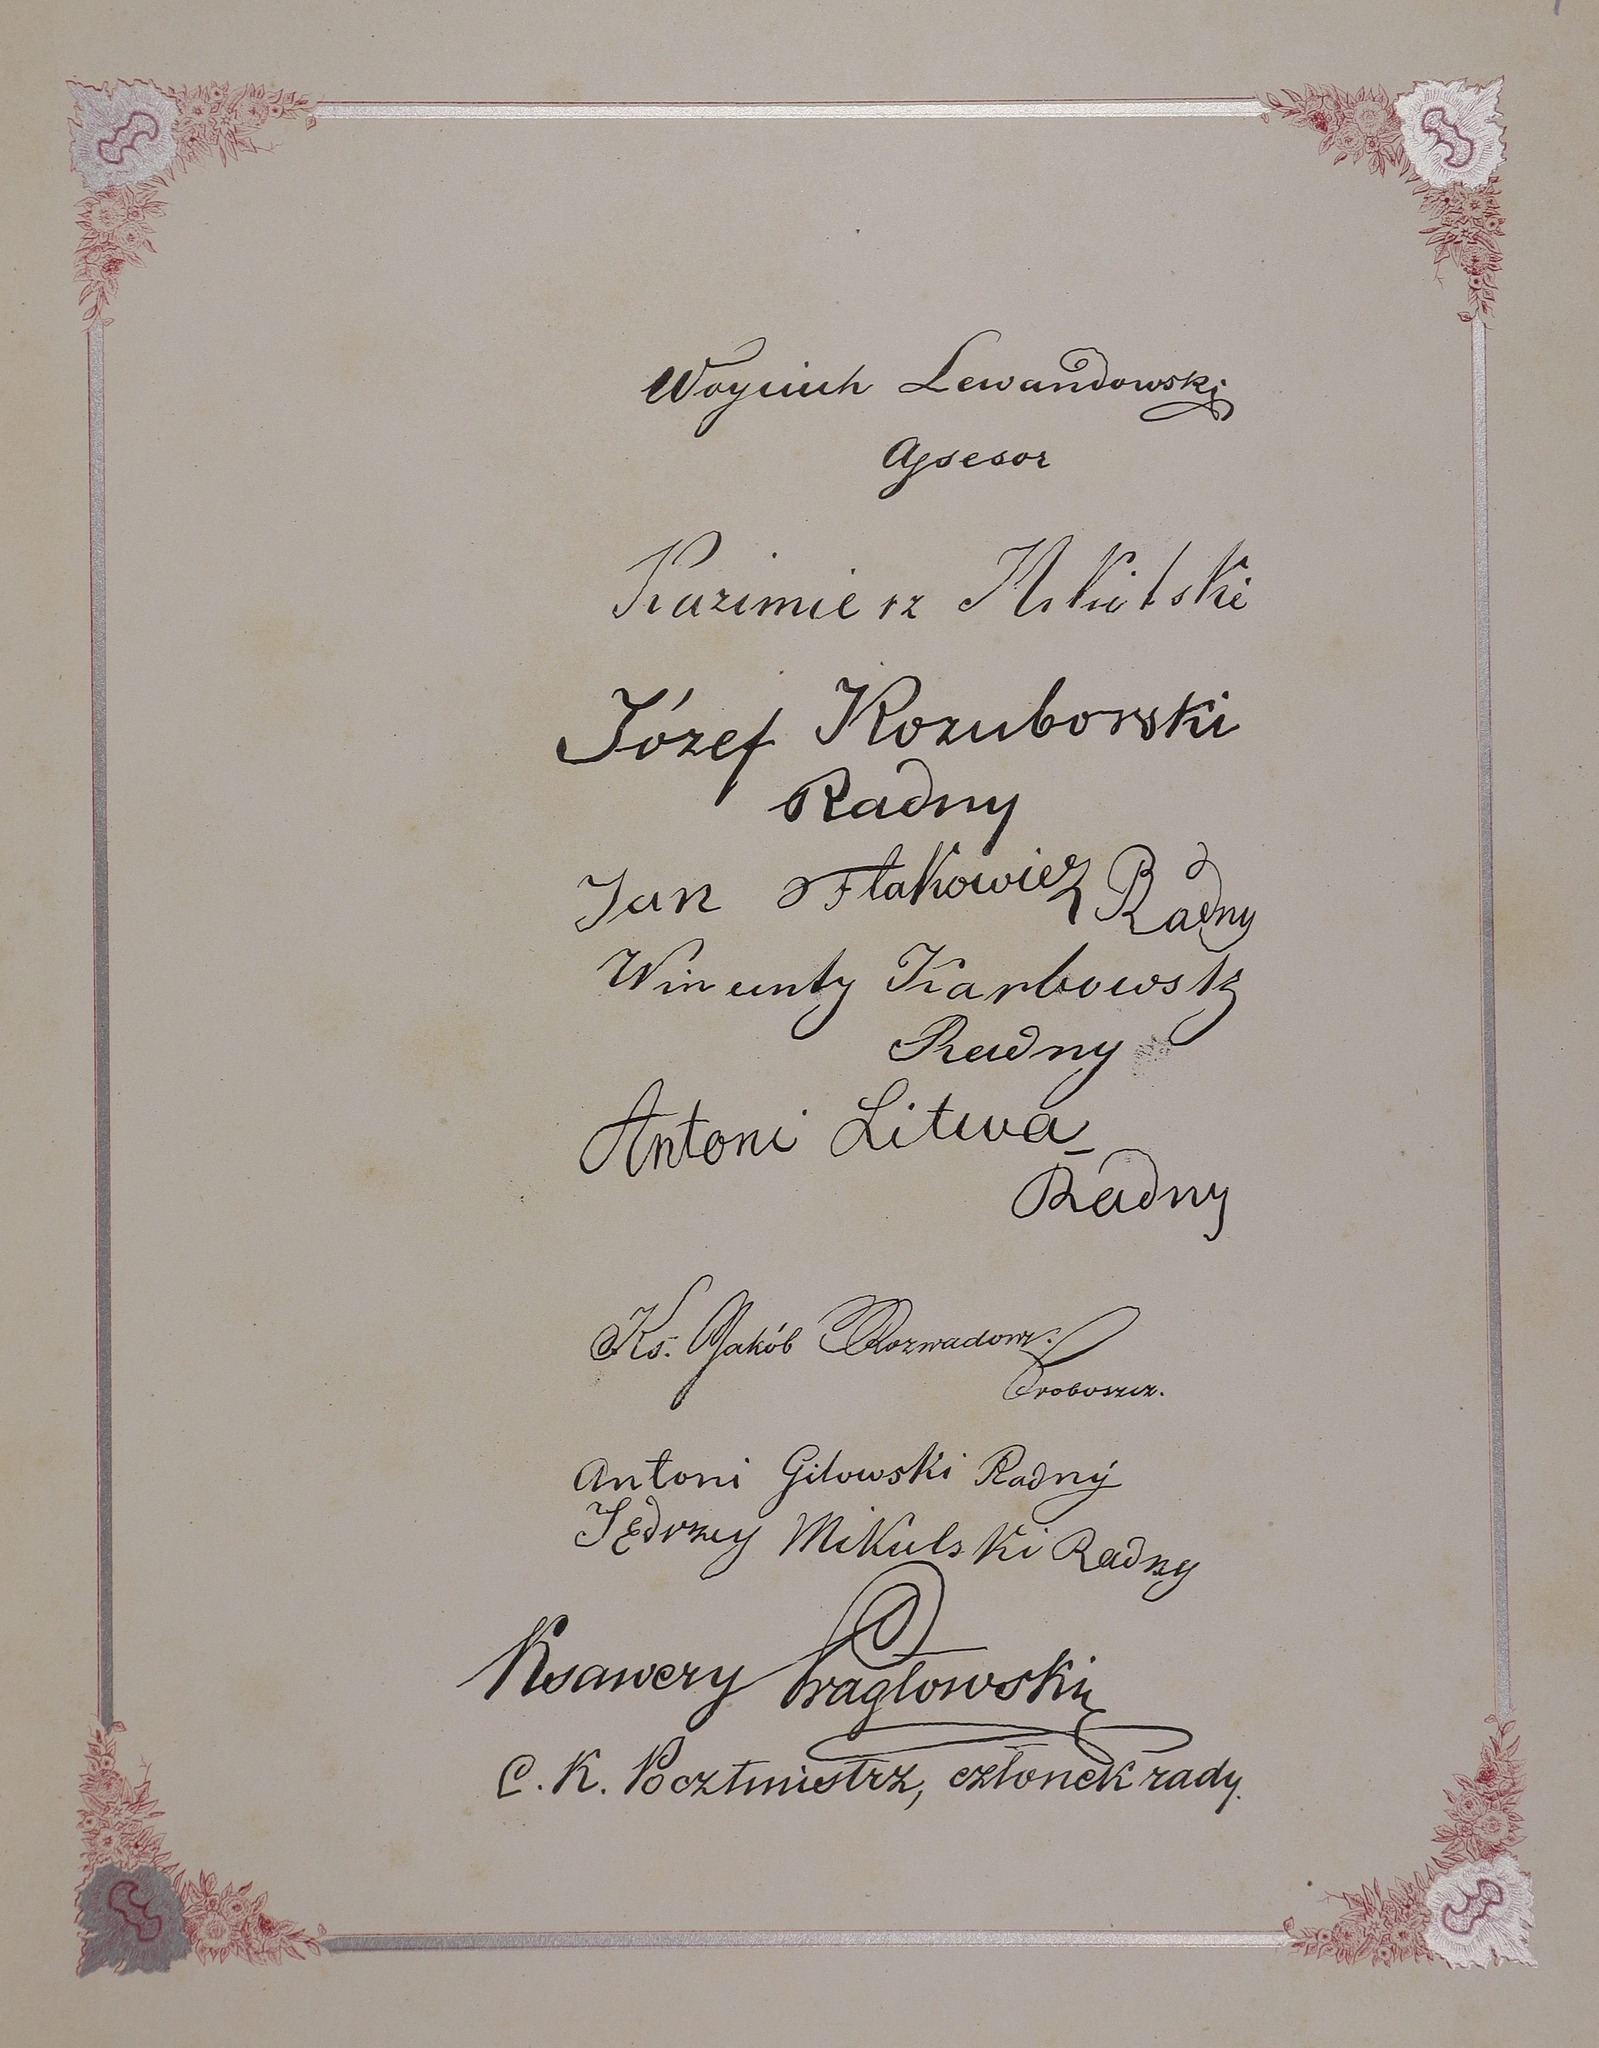 Woyciech Lewandowski
Assesor
Kazimierz Mikulski
Józef Kozuborski
Radny
Jan Flakowicz Radny
Wincenty Karbowski
Radny
Antoni Litwa
Radny
Ks. Jakób Rozwadow:
Proboszcz.
Antoni Gilowski Radny
Jędrzey Mikulski Radny
Ksawery Prągłowski
C. K. Pocztmistrz, członek rady.